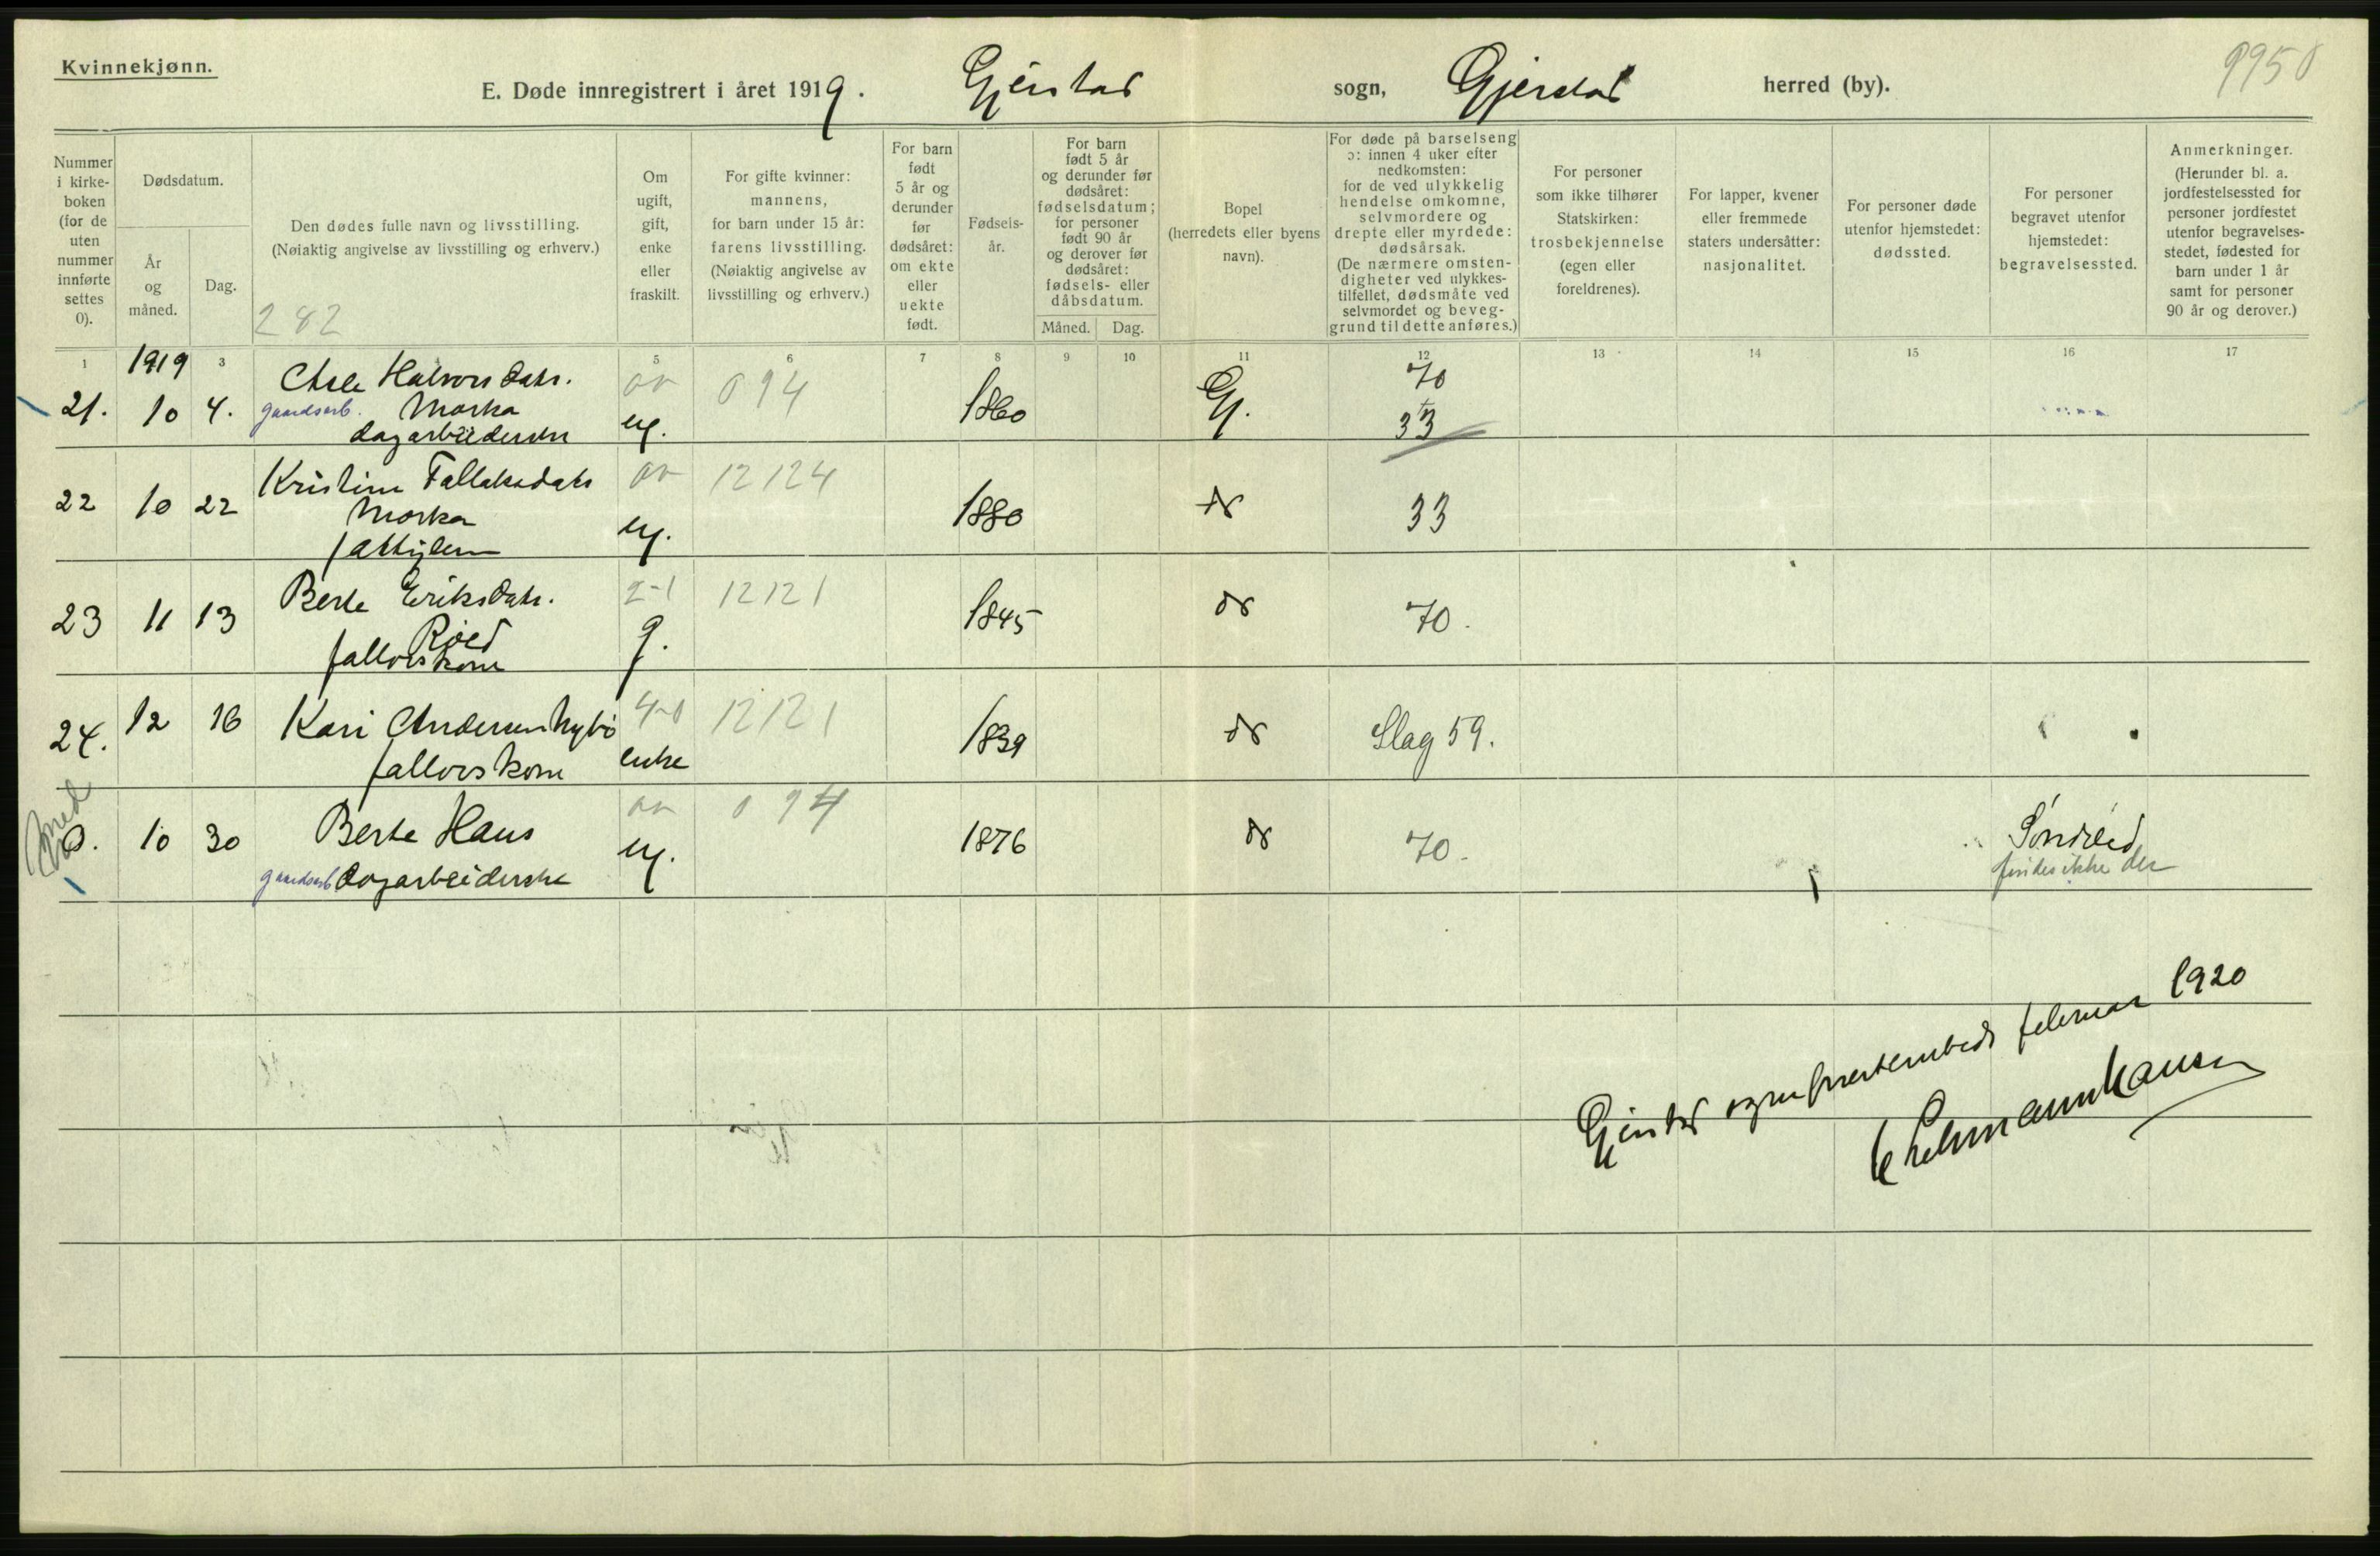 Kvinnekjønn.
E. Døde innregistrert i året 1919. Gjerstad sogn, Gjerstad herred (by).
9950
Nummer i kirke- boken (for de uten nummer innførte settes 0).
Dødsdatum.
År og måned.
Dag.
Den dødes fulle navn og livsstilling.
(Nøiaktig angivelse av livsstilling og erhverv.)
282
Om ugift, gift, enke eller fraskilt.
For gifte kvinner: mannens, for barn under 15 år: farens livsstilling. (Nøiaktig angivelse av livsstilling og erhverv.)
For barn født 5 år og derunder før dødsåret: om ekte eller uekte født.
Fødsels- år.
For barn født 5 år og derunder før dødsåret: fødselsdatum; for personer født 90 år og derover før dødsåret: fødsels- eller dåbsdatum.
Måned. Dag.
Bopel (herredets eller byens navn).
For døde på barselseng ɔ: innen 4 uker efter nedkomsten: for de ved ulykkelig hendelse omkomne, selvmordere og drepte eller myrdede: dødsårsak. (De nærmere omsten- digheter ved ulykkes- tilfellet, dødsmåte ved selvmordet og beveg- grund til dette anføres.)
For personer som ikke tilhører Statskirken: trosbekjennelse (egen eller foreldrenes).
For lapper, kvener eller fremmede staters undersåtter: nasjonalitet.
For personer døde utenfor hjemstedet: dødssted.
For personer begravet utenfor hjemstedet: begravelsessted.
Anmerkninger. (Herunder bl. a. jordfestelsessted for personer jordfestet utenfor begravelses- stedet, fødested for barn under 1 år samt for personer 90 år og derover.)
1 3 5 6 7 8 9 10 11 12 13 14 15 16 17
1919
21. 10 4. Halvorsdatr. ug. 094 1860 Gj. 70
gaardsarb. Morka 33
dagarbeiderske
22 10 22 Kristine Tallaksdatr ug. 12124 1880 33
Morka
fattiglem
23 11 13 Berte Eriksdatr. 2-1 g. 12121 1845 70.
Røed
fallors kone
24. 12 16 Kari Andersen Nybø 4-0 enke 12121 1839 Slag 59.
fallors kone
0. 10 30 Berte Haus ug. 094 1876 70. Søndeled
gaardsarb dagarbeiderske findes ikke der
Gjerstad sogneprestembede februar 1920